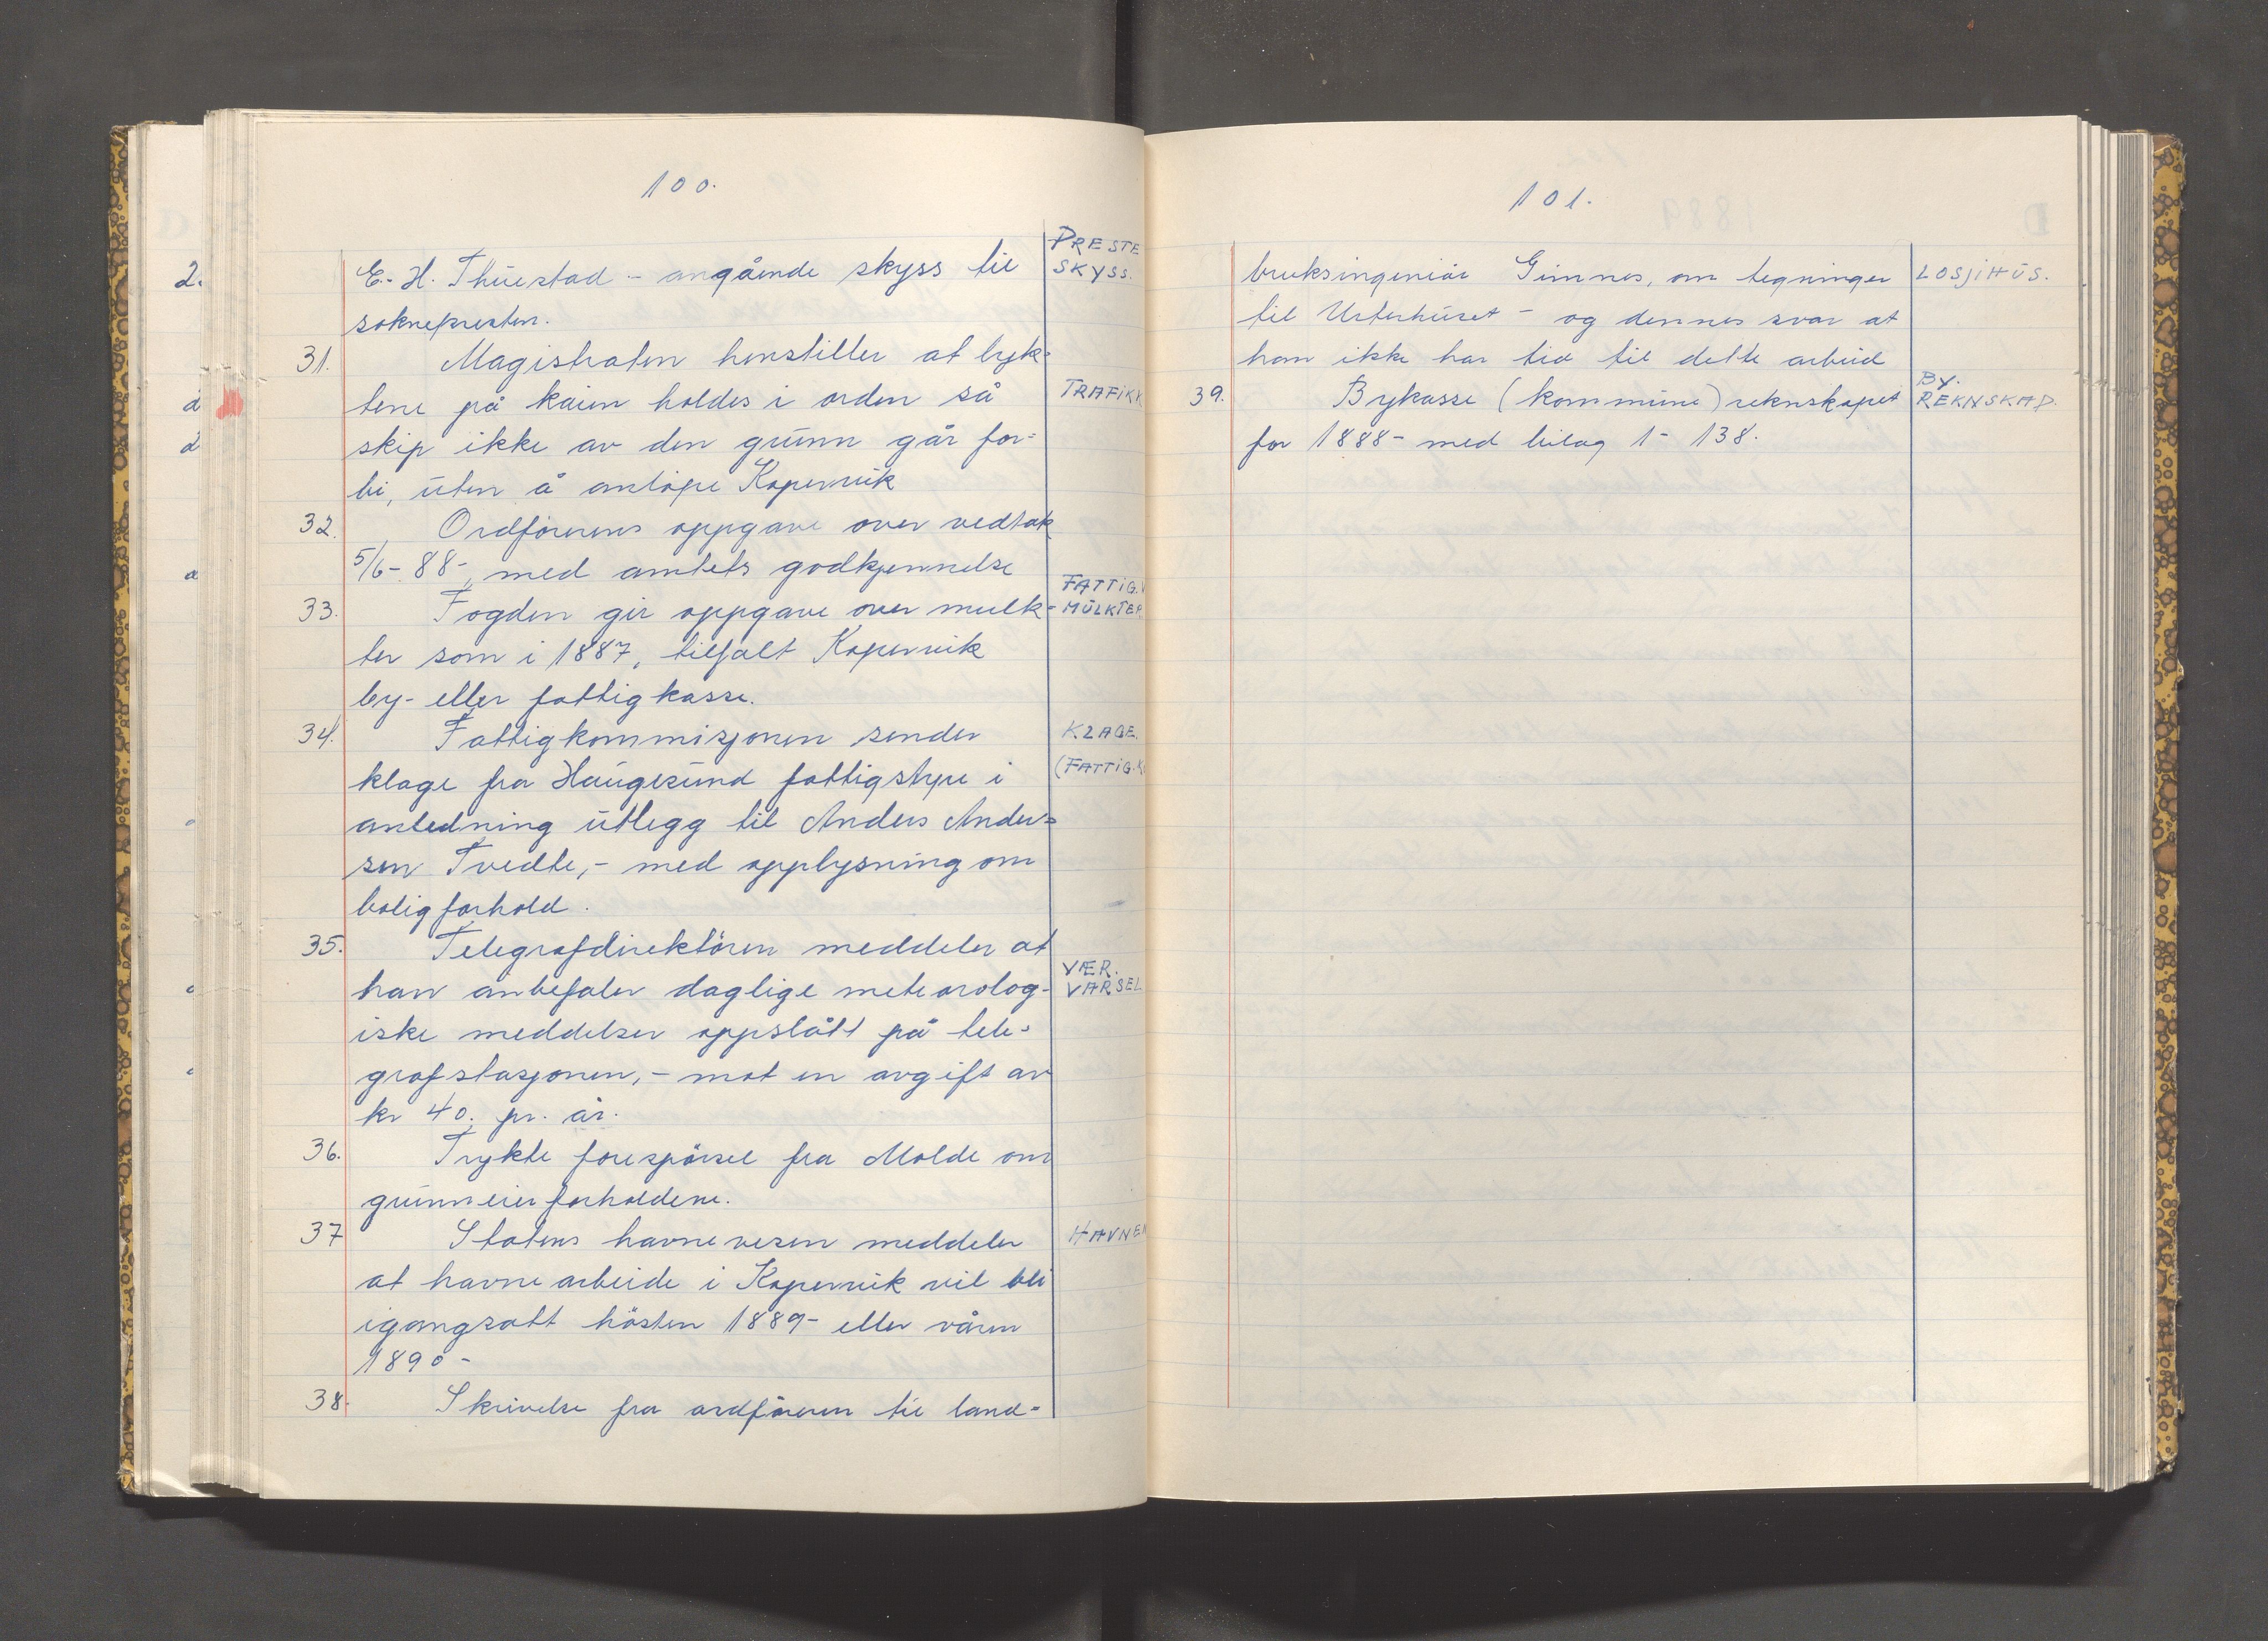 100.
PRESTE
E. H. Thuestad - angående skyss til
SKYSS.
soknepresten.
31. Magistraten henstiller at lyk=
tene på kaien holdes i orden så
TRAFIKK
skip ikke av den grunn går for=
bi, uten å anløpe Kopervik
32. Ordførerens oppgave over vedtak
5/6-88-, med amtets godkjennelse
FATTIG.V
33. Fogden gir oppgave over mulk=
MULKTER.
ter som i 1887, tilfalt Kopervik
by- eller fattigkasse.
34. Fattigkommisjonen sender
KLAGE.
klage fra Haugesund fattigstyre i
(FATTIG.K
anledning utlegg til Anders Ander=
sen Tvedte, - med opplysning om
boligforhold.
35. Telegrafdirektøren meddeler at
VÆR.
han anbefaler daglige meteorolog-
VARSEL
iske meddelser oppslått på tele=
grafstasjonen, - mot en avgift av
kr 40. pr. år.
36. Trykte forespørsel fra Molde om
grunneierforholdene.
37 Statens havnevesen meddeler
HAVNEN
at havnearbeide i Kopervik vil bli
igangsatt høsten 1889- eller våren
1890-
38. Skrivelse fra ordføreren til land=
101.
bruksingeniør Gimnes, om tegninger
LOSJIHUS.
til Urterhuset - og dennes svar at
han ikke har tid til dette arbeid
BY.
39. Bykasse (kommune) reknskapet
REKNSKAP.
for 1888- med bilag 1- 138.